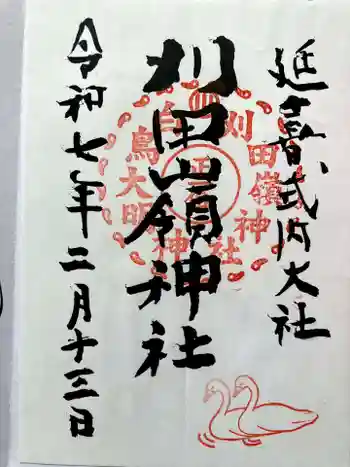 延喜式内大社
刈田嶺神社
令和七年二月十三日
刈田嶺神社
白鳥大明神